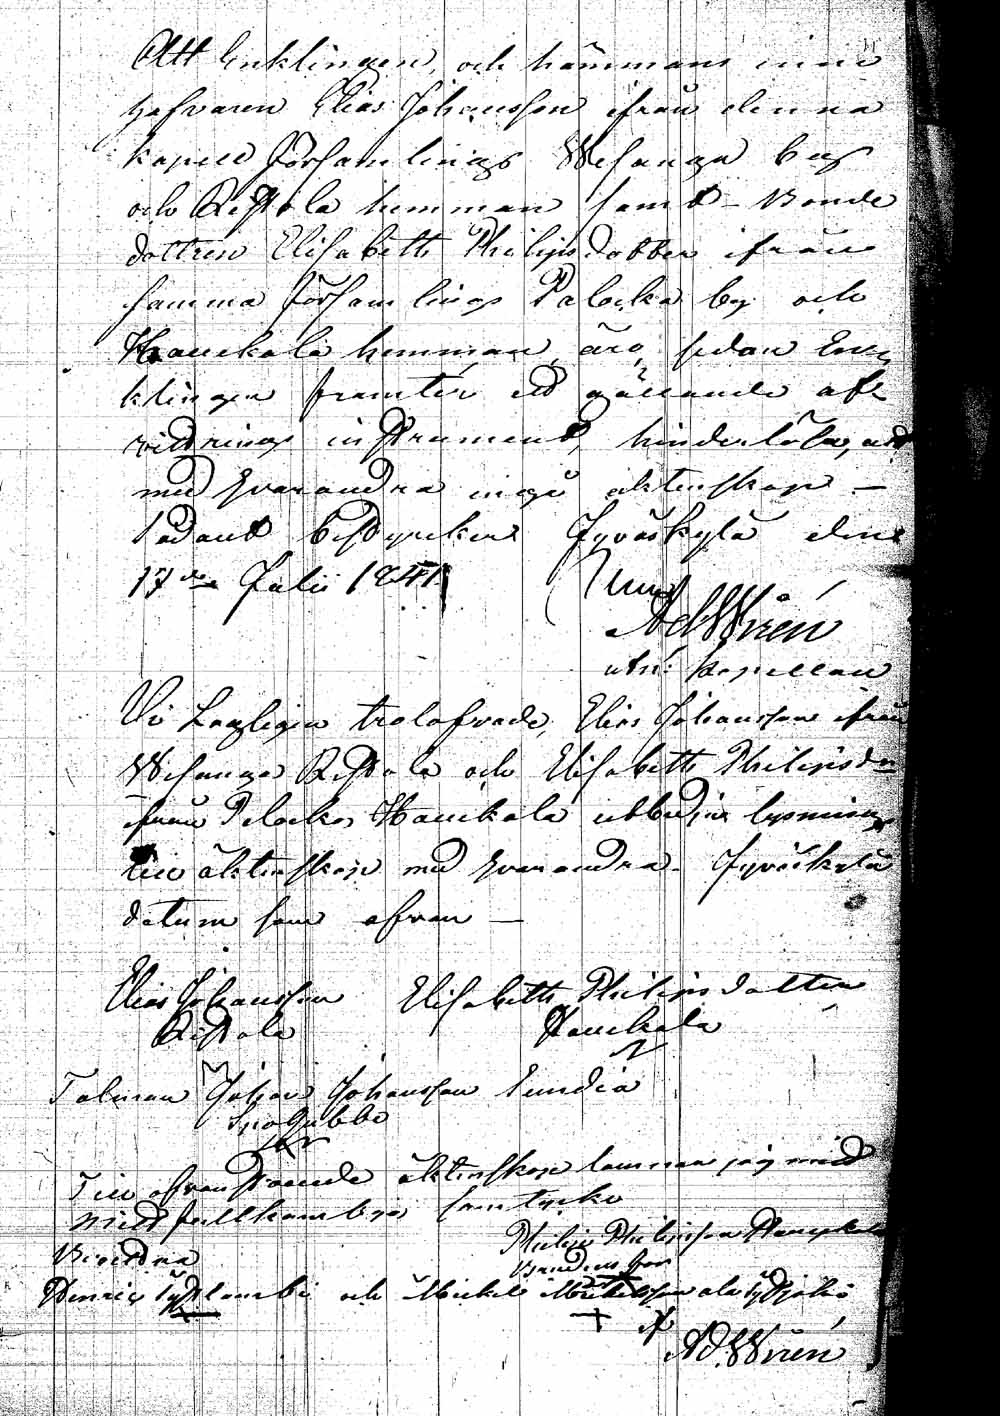 Att Enklingen, och hämmans inne
hafvaren Elias Johansson ifrån denna
kapell Församlings Wesanga by
och Ristola hemman samt Bonde
dottren Elisabeth Philipsdotter ifrån
samma Församlings Palocka by och
Hauckala hemman, äro, sedan Enk
klingen framtér ett gällande aft
vittrings instrument, hinderlöse, att
med hvarandra ingå äktenskap —
Sådant bestyrker Jyväskylä den
17de Julii 1841.
Ad Wirén
Kapellan
Vi Lagligen trolofvade, Elias Johansson ifrån
Wesanga Ristola och Elisabeth Philipsdr
ifrån Palocka Hauckala utbedja lysning
till äktenskap med hvarandra. Jyväskylä
datum som ofvan —
Elias Johansson Elisabeth Philipsdotter
Ristola Hauckala
Talman Johan Johansson
Till ofvanstående äktenskap lemnar jag mitt
mitt fullkomliga samtycke
Philip Philipsson Hauckala
Brudens far
Bevittna
Henric och Mickel
Ad. Wirén